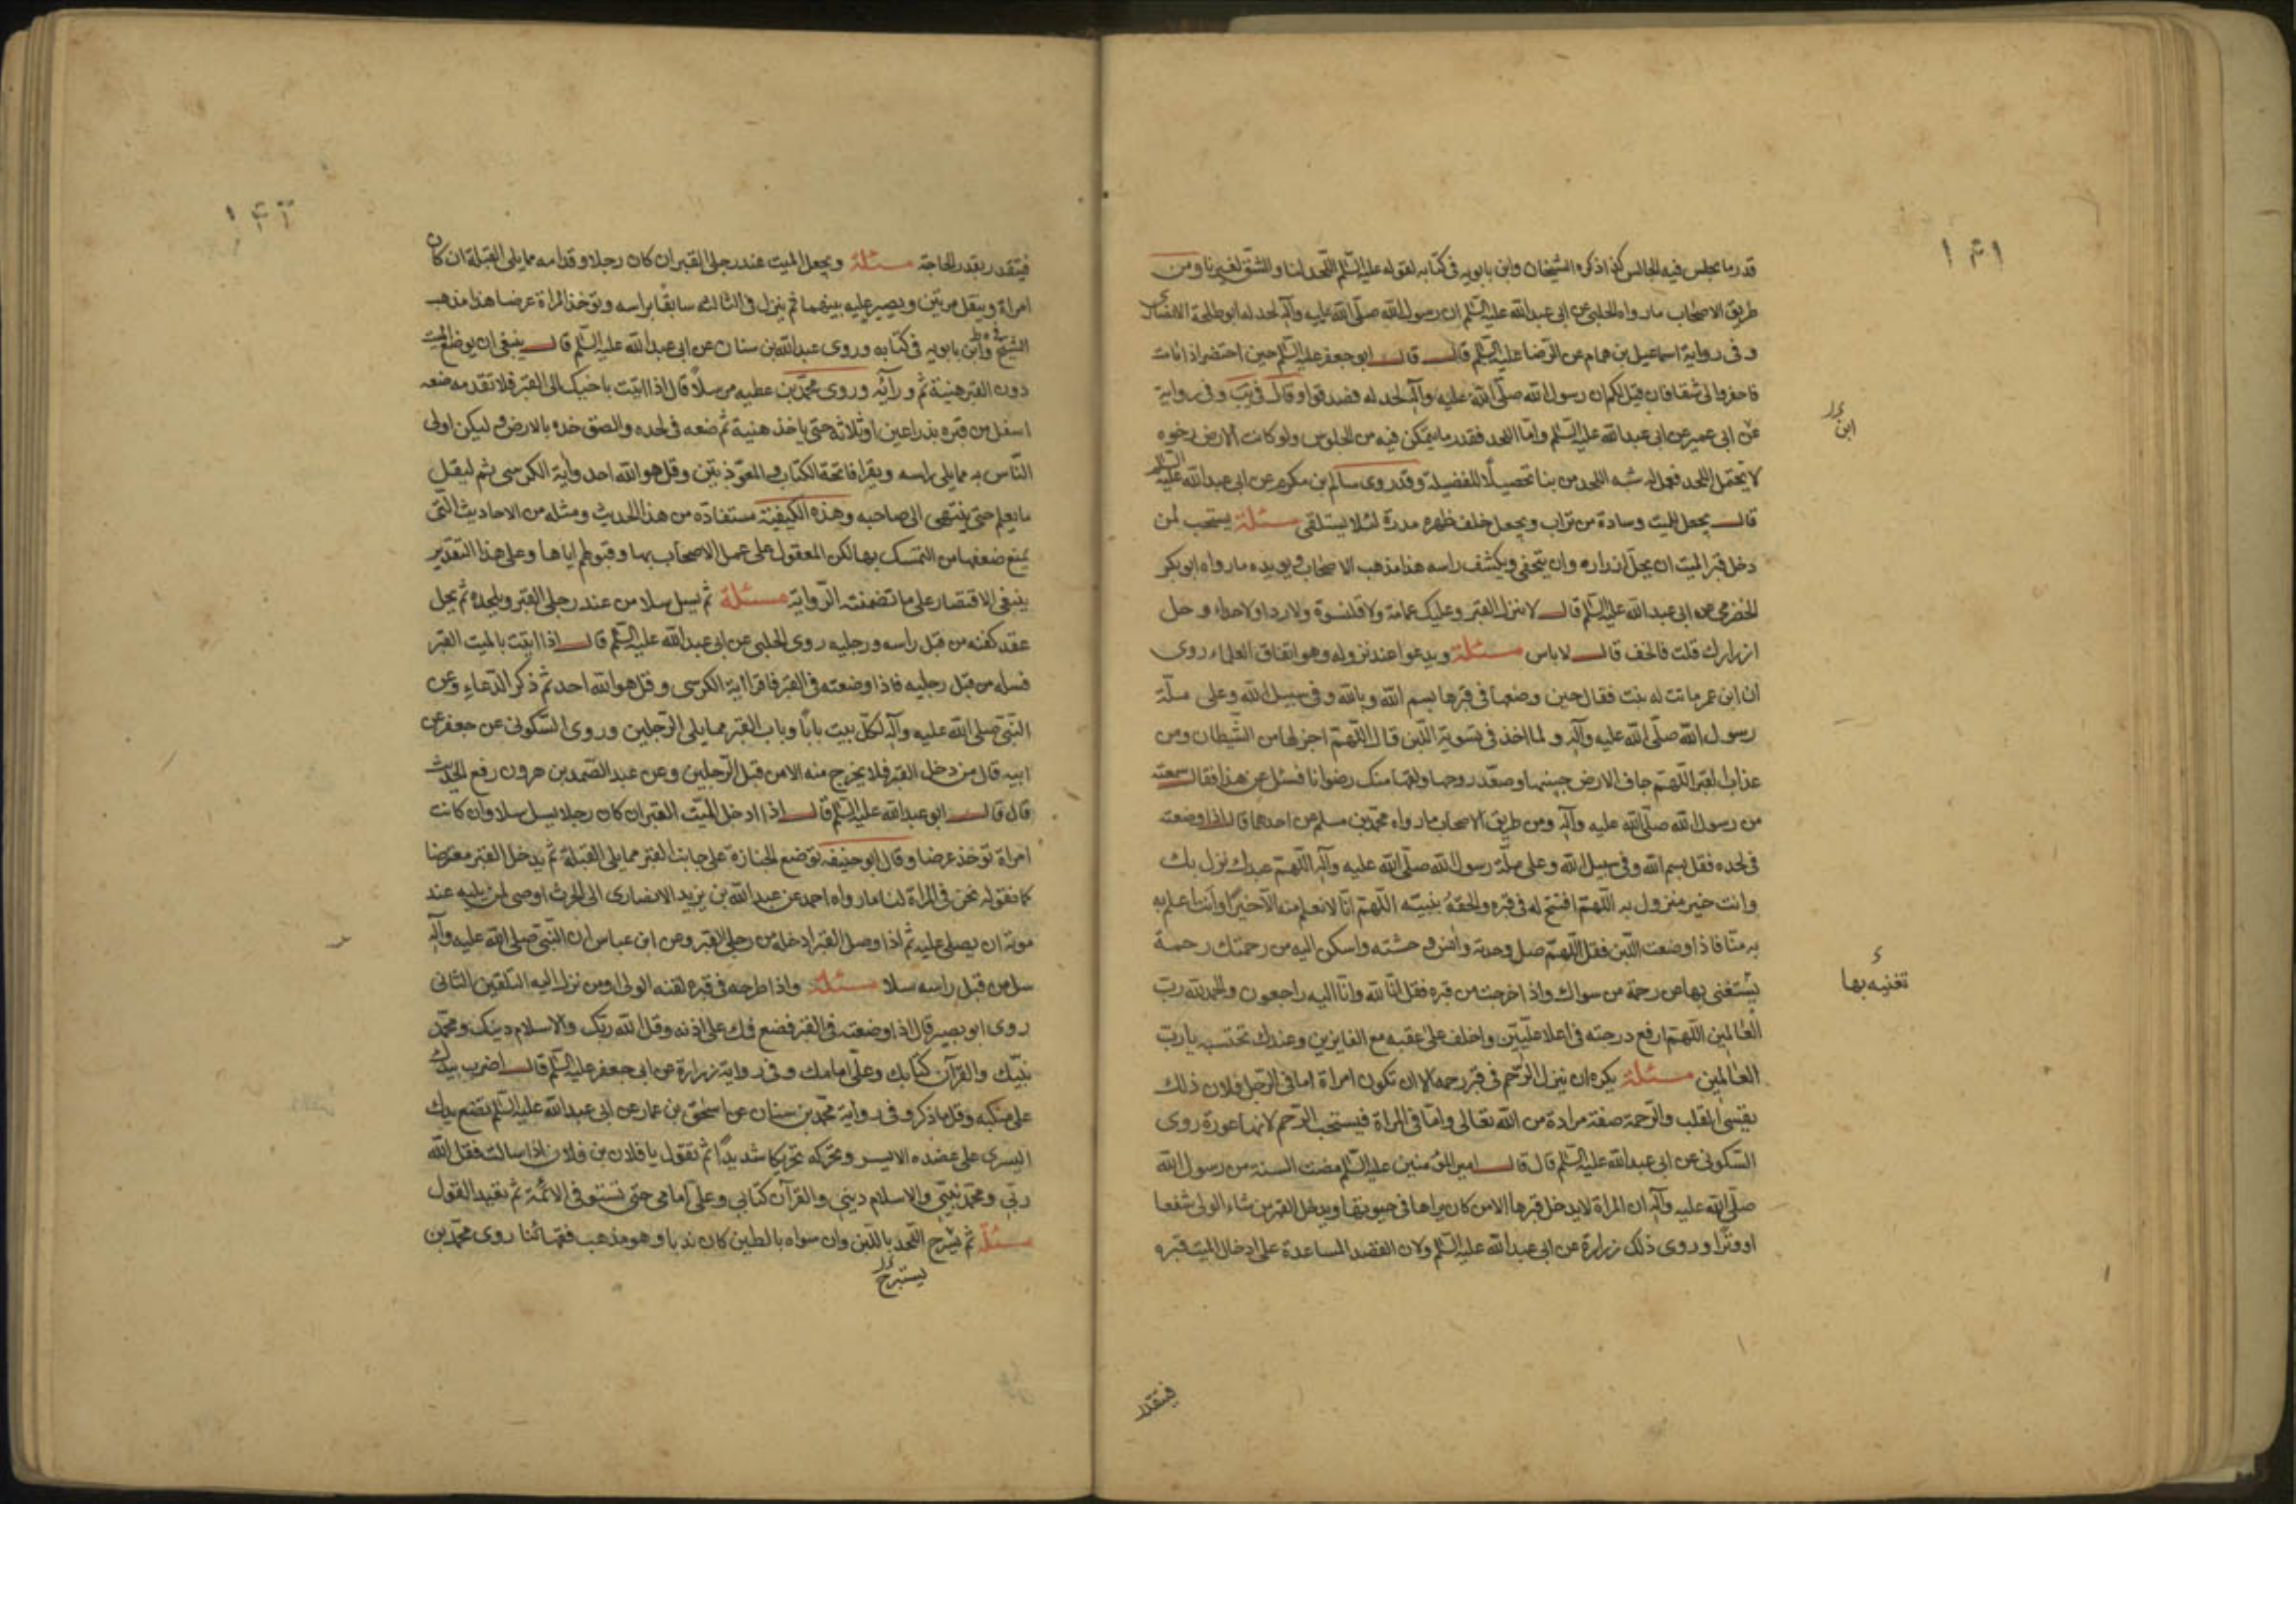 قدر ما يجلس فيه الجالس كذا ذكره الشيخان وابن بابويه في كتابه لقوله عليه السّلم اللّحد لنا والشق لغيرنا ومن
طريق الاصحاب ما رواه الحلبي عن ابي عبد الله عليه السّلم ان رسول الله صلّى الله عليه وآله لحد له ابو طلحة الانصاري
و في رواية اسماعيل بن همام عن الرّضا عليه السّلم قال قال ابو جعفر عليه السّلم حين احتضر اذا انا مت
فاحفروا لي شقا فان قيل لكم ان رسول الله صلّى الله عليه وآله لحد له فصدقوا وقال في يب وفي رواية
عن ابي عمير عن ابي عبد الله عليه السّلم وامّا اللحد فقدر ما يتمكن فيه من الجلوس ولو كانت الارض رخوه
ابن
لا تحتمل اللحد فعمل له شبه اللحد من بنا تحصيلًا للفضيلة وقد روى سالم بن مكرم عن ابي عبد الله عليه السّلم
قال يجعل للميت وسادة من تراب ويجعل خلف ظهره مدرة لئلا يستلقى مسئلة يستحب لمن
دخل قبر الميت ان يحل ازراره وان يتحفى ويكشف راسه هذا مذهب الاصحاب ويويده ما رواه ابو بكر
الحضرمي عن ابي عبد الله عليه السّلم قال لا تنزل القبر وعليك عمامة ولا قلنسوة ولا ردا ولا حذاء و حل
ازرارك قلت فالخف قال لا باس مسئلة ويدعوا عند نزوله وهو اتفاق العلماء روى
ان ابن عمر ماتت له بنت فقال حين وضعها في قبرها بسم الله وبالله وفي سبيل الله وعلى ملّة
رسول الله صلّى الله عليه وآله و لما اخذ في تسوية اللّبن قال اللّهمّ اجرها من الشّيطان ومن
عذاب القبر اللّهمّ جاف الارض جنبيها وصعّد روحها ولقها منك رضوانا فسئل عن هذا فقال سمعته
من رسول الله صلّى الله عليه وآله ومن طريق الاصحاب ما رواه محمّد بن مسلم عن احدهما قال اذا وضعته
في لحده فقل بسم الله وفي سبيل الله وعلى ملّة رسول الله صلّى الله عليه وآله اللّهمّ عبدك نزل بك
وانت خير منزول به اللّهمّ افتح له في قبره والحقه بنبيّه اللّهمّ انّا لا نعلم منه الّا خيرًا وانت اعلم به
به منّا فاذا وضعت اللّبن فقل اللّهمّ صل وحدته وانس وحشته واسكن اليه من رحمتك رحمة
يستغنى بها من رحمة من سواك واذا خرجت من قبره فقل انّا لله وانّا اليه راجعون والحمد لله ربّ
تغنيه بها
العالمين اللّهمّ ارفع درجته في اعلا علّيّين واخلف على عقبه مع الغابرين وعندك نحتسبه يا ربّ
العالمين مسئلة يكره ان ينزل الرّحم في قبر رحمه الا ان تكون امراة اما في الرّجل فلان ذلك
يقسى القلب والرّحمة صفة مرادة من الله تعالى وامّا في المراة فيستحب الرّحم لانها عورة روى
السّكوني عن ابي عبد الله عليه السّلم قال قال امير المؤمنين عليه السّلم مضت السنة من رسول الله
صلّى الله عليه وآله ان المراة لا يدخل قبرها الا من كان يراها في حيوتها ويدخل القبر من شاء الولى شفعا
او وترًا وروى ذلك زرارة عن ابي عبد الله عليه السّلم ولان القصد المساعدة على ادخال الميت قبره
فيتقدر
فيتقدر بقدر الحاجة مسئلة ويجعل الميت عند رجلى القبر ان كان رجلا وقدامه مما يلى القبلة ان كان
امراة وينقل مرتين ويصبر عليه بينهما ثم ينزل في الثالثه سابقا براسه وتوخذ المراة عرضا هذا مذهب
الشيخ في ط وابن بابويه في كتابه وروى عبد الله بن سنان عن ابي عبد الله عليه السّلم قال ينبغى ان يوضع الميّت
دون القبر هنيئة ثمّ وراه وروى محمّد بن عطيه مرسلًا قال اذا اتيت باخيك الى القبر فلا تقدمه ضعه
اسفل من قبره بذراعين او ثلاثه حتى ياخذ هنية ثم ضعه في لحده والصق خده بالارض و ليكن اولى
النّاس به مما يلى راسه ويقرا فاتحة الكتاب و المعوّذتين وقل هو الله احد وآية الكرسي ثم ليقل
ما يعلم حتى ينتهى الى صاحبه وهذه الكيفيّة مستفادة من هذا الحديث ومثله من الاحاديث الّتي
يمنع ضعفها من التمسك بها لكن المعقول على عمل الاصحاب بها وقبولهم اياها وعلى هذا التقدير
ينبغى الاقتصار على ما تضمنته الرّواية مسئلة ثم يسل سلا من عند رجلى القبر ويلحده ثم يحل
عقد كفنه من قبل راسه ورجليه روى الحلبي عن ابي عبد الله عليه السّلم قال اذا اتيت بالميت القبر
فسله من قبل رجليه فاذا وضعته في القبر فاقرا اية الكرسي و قل هو الله احد ثمّ ذكر الدّعاء وعن
النّبيّ صلى الله عليه وآله لكلّ بيت بابًا وباب القبر مما يلى الرّجلين وروى السّكوني عن جعفر عن
ابيه قال من دخل القبر فلا يخرج منه الا من قبل الرّجلين وعن عبد الصّمد بن هرون رفع الحديث
قال قال ابو عبد الله عليه السّلم قال اذا ادخل الميّت القبر ان كان رجلا يسل سلا وان كانت
امراة توخذ عرضا وقال ابو حنيفه توضع الجنازة على جانب القبر مما يلى القبلة ثم يدخل القبر معترضا
كما نقوله نحن في المراة لنا ما رواه احمد عن عبد الله بن يزيد الانصارى ان الحرث اوصى لمن يليه عند
موته ان يصلى عليه ثم اذا وصل القبر ادخله من رجلى القبر وعن ابن عباس ان النّبيّ صلى الله عليه وآله
سل من قبل راسه سلا مسئلة واذا طرحه في قبره لقنه الولى او من نزل اليه التلقين الثانى
روى ابو بصير قال اذا وضعته في القبر فضع فك على اذنه وقل الله ربّك والاسلام دينك ومحمّد
نبيّك والقرآن كتابك وعلى امامك وفي رواية زرارة عن ابي جعفر عليه السّلم قال اضرب بيدك
على منكبه وقل ما ذكر و في رواية محمّد بن سنان عن اسحق بن عمار عن ابي عبد الله عليه السّلم تضع يدك
اليسرى على عضده الايسر وتحرّكه تحريكا شديدًا ثم تقول يا فلان بن فلان اذا سالت فقل الله
ربّي ومحمّد نبيّي والاسلام ديني والقرآن كتابي وعلى امامي حتى تستوفي الائمّة ثم تعيد القول
مسئلة ثم يشرج اللّحد باللّبن وان سواه بالطين كان ندبا وهو مذهب فقهائنا روى محمّد بن